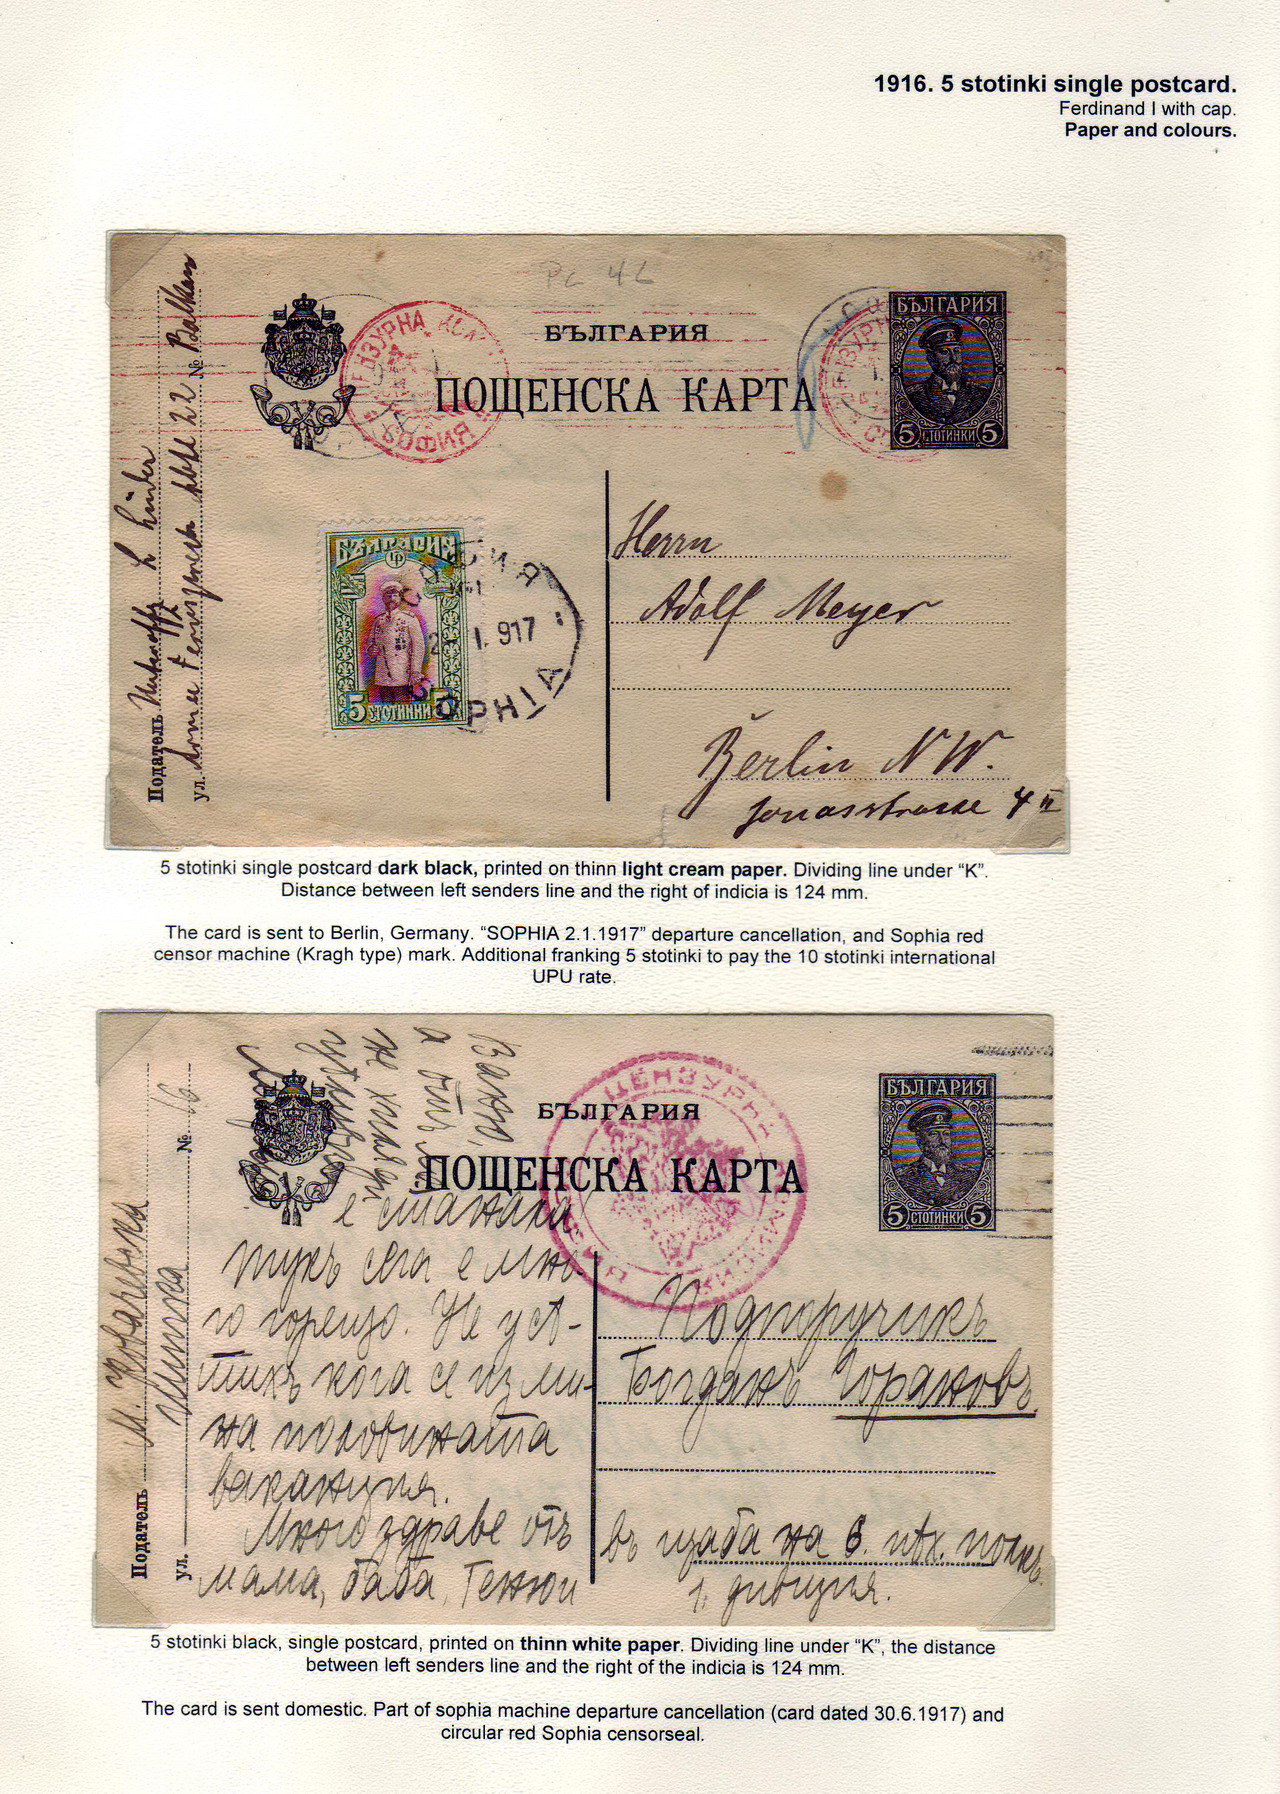 1916. 5 stotinki single postcard.
Ferdinand I with cap.
Paper and colours.
PC 4L
БЪЛГАРИЯ
ПОЩЕНСКА КАРТА
ЦЕНЗУРНА
СОФИЯ
БЪЛГАРИЯ
5 СТОТИНКИ 5
Податель
ул.
№ Balkan
БЪЛГАРИЯ
5 СТОТИНКИ 5
СОФИЯ
2 1. 917
SOPHIA
Herrn
Adolf Meyer
Berlin NW.
Jonasstrasse 4 II
5 stotinki single postcard dark black, printed on thinn light cream paper. Dividing line under “K”.
Distance between left senders line and the right of indicia is 124 mm.
The card is sent to Berlin, Germany. “SOPHIA 2.1.1917” departure cancellation, and Sophia red
censor machine (Kragh type) mark. Additional franking 5 stotinki to pay the 10 stotinki international
UPU rate.
БЪЛГАРИЯ
ПОЩЕНСКА КАРТА
ЦЕНЗУРНА
БЪЛГАРИЯ
5 СТОТИНКИ 5
Податель М. Ковачевска
ул. Шипка № 16
е станала
тукъ сега е мно-
го горещо. Не усѣ-
тихъ кога се изми-
на половината
ваканция.
Много здраве отъ
мама, баба,
Подпоручикъ
Богданъ Горановъ
въ щаба на 6. пѣх. полкъ
1. дивизия.
5 stotinki black, single postcard, printed on thinn white paper. Dividing line under “K”, the distance
between left senders line and the right of the indicia is 124 mm.
The card is sent domestic. Part of sophia machine departure cancellation (card dated 30.6.1917) and
circular red Sophia censorseal.